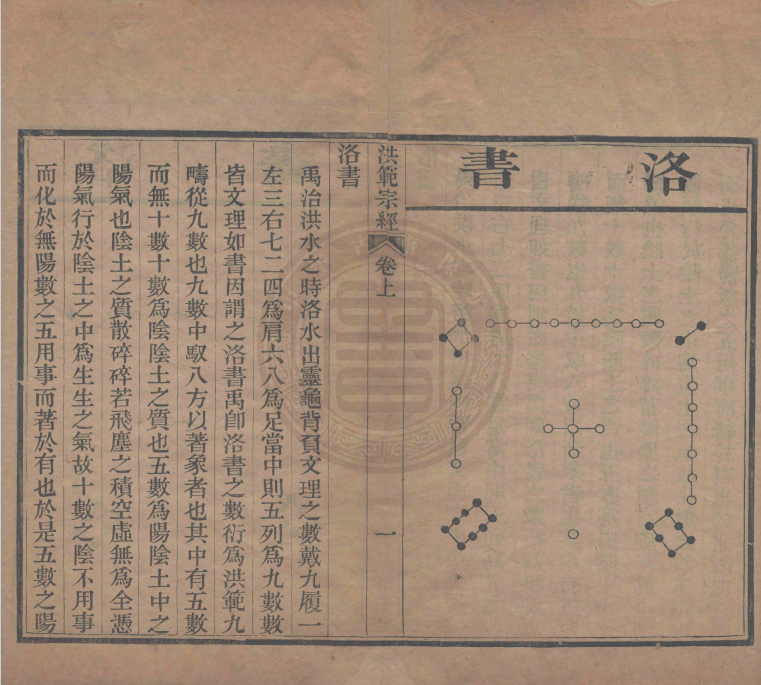 洛書
洪範宗經 卷上 一
洛書
禹治洪水之時洛水出靈龜背負文理之數戴九履一
左三右七二四爲肩六八爲足當中則五列爲九數數
皆文理如書因謂之洛書禹卽洛書之數衍爲洪範九
疇從九數也九數中馭八方以著象者也其中有五數
而無十數十數爲陰陰土之質也五數爲陽陰土中之
陽氣也陰土之質散碎碎若飛塵之積空虛無爲全憑
陽氣行於陰土之中爲生生之氣故十數之陰不用事
而化於無陽數之五用事而著於有也於是五數之陽